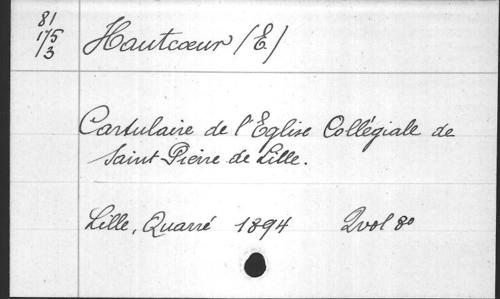 81
175
/3
Hautcœur (E)
Cartulaire de l'Eglise Collégiale de
Saint Pierre de Lille.
Lille, Quarré 1894 2vol 8o